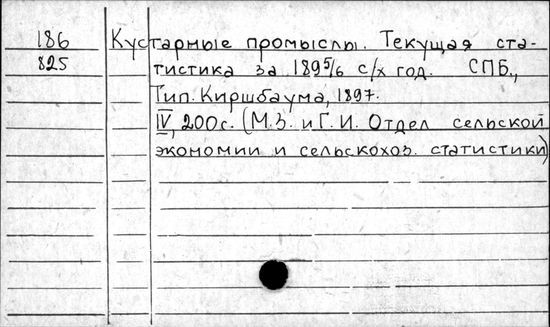 186 Кустарные промыслы. Текущая ста-
825 тистика за 1895/6 с/х год. СПБ.,
Тип. Киршбаума, 1897.
IV, 200с. (М.З. и Г.И. Отдел сельской
экономии и сельскохоз. статистики)